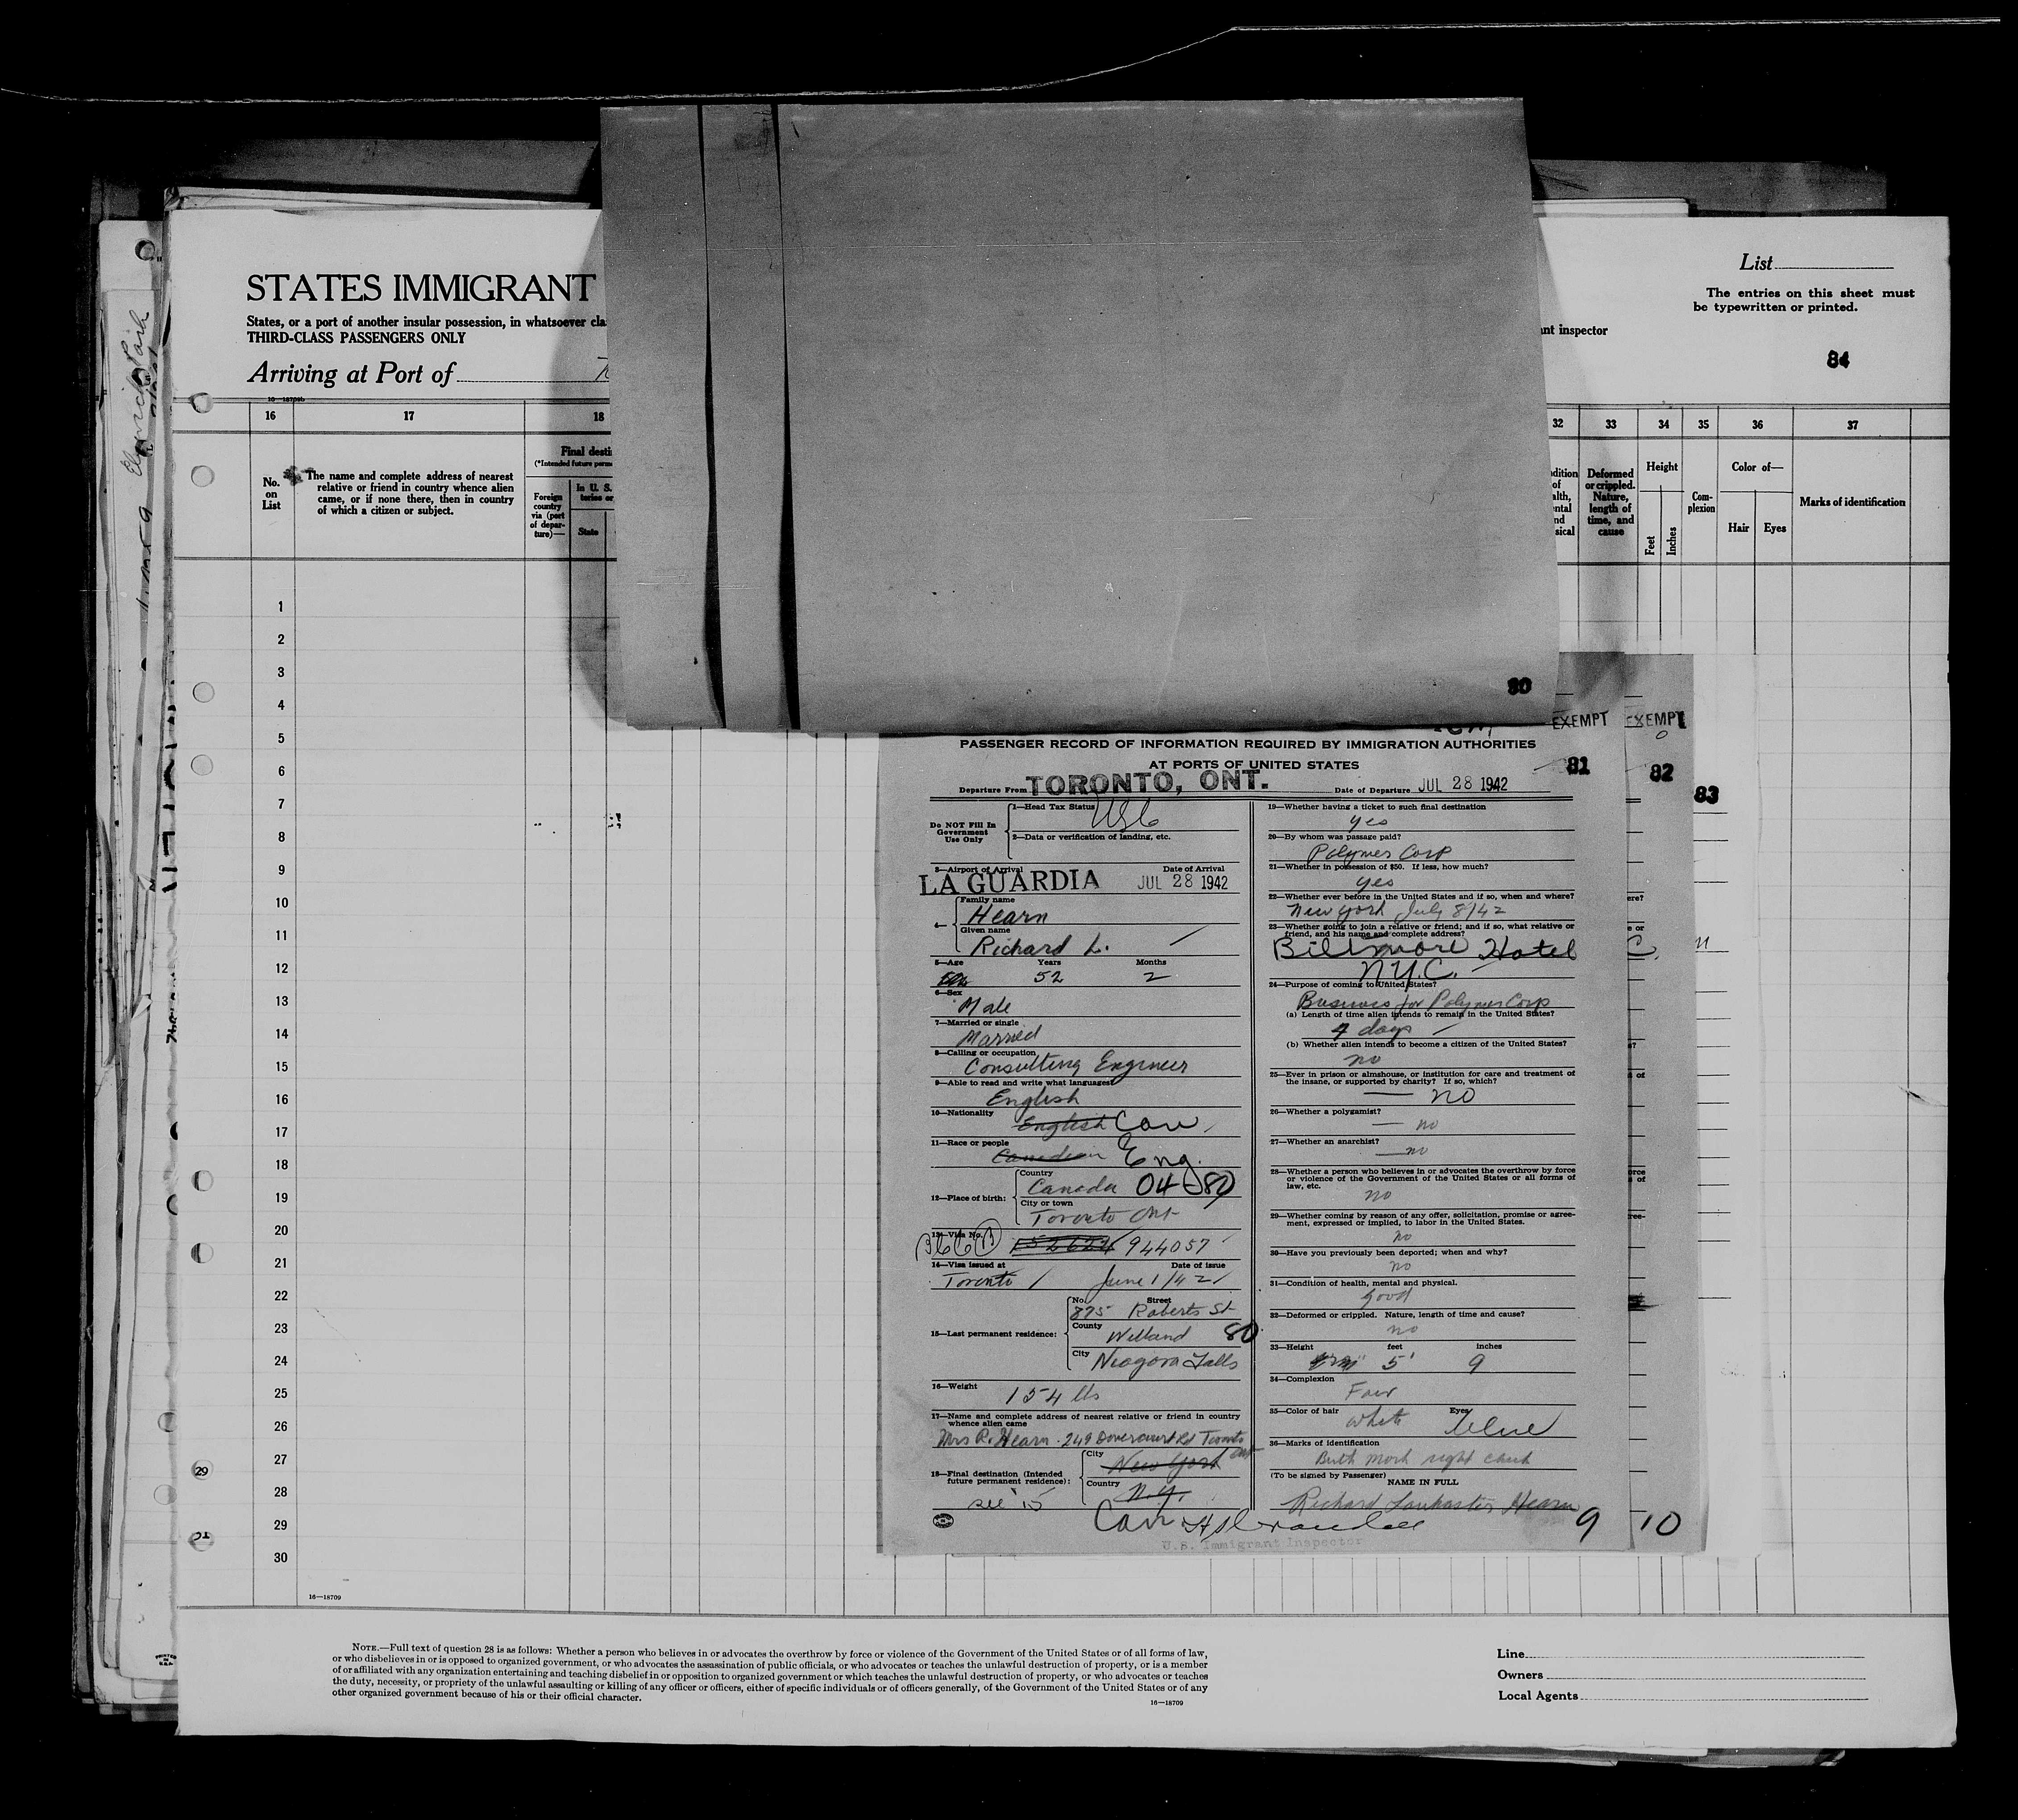 STATES IMMIGRANT
States, or a port of another insular possession, in whatsoever cla
THIRD-CLASS PASSENGERS ONLY
Arriving at Port of
List
The entries on this sheet must
be typewritten or printed.
nt inspector
84
16—18709b
16 17 18 32 33 34 35 36 37
No.
on
List
The name and complete address of nearest
relative or friend in country whence alien
came, or if none there, then in country
of which a citizen or subject.
Final desti
(*Intended future perm
Foreign
country
via (port
of depar-
ture)—
In U. S.
tories or
State
dition
of
alth,
ntal
nd
sical
Deformed
or crippled.
Nature,
length of
time, and
cause
Height
Feet
Inches
Com-
plexion
Color of—
Hair Eyes
Marks of identification
1
2
3
4
5
6
7
8
9
10
11
12
13
14
15
16
17
18
19
20
21
22
23
24
25
26
27
28
29
30
29
90
EXEMPT EXEMPT
81
82
83
PASSENGER RECORD OF INFORMATION REQUIRED BY IMMIGRATION AUTHORITIES
AT PORTS OF UNITED STATES
Departure From TORONTO, ONT. Date of Departure JUL 28 1942
Do NOT Fill In
Government
Use Only
1—Head Tax Status
2—Data or verification of landing, etc.
3—Airport of Arrival Date of Arrival
LA GUARDIA JUL 28 1942
4—
Family name
Hearn
Given name
Richard L.
5—Age Years Months
52 2
6—Sex
Male
7—Married or single
Married
8—Calling or occupation
Consulting Engineer
9—Able to read and write what languages
English
10—Nationality
English Can
11—Race or people
Canadian Eng.
12—Place of birth:
Country
Canada 04 080
City or town
Toronto Ont
13—Visa No.
944057
14—Visa issued at Date of issue
Toronto June 1/42
15—Last permanent residence:
No. Street
875 Roberts St
County
Welland 80
City
Niagara Falls
16—Weight
154 lbs
17—Name and complete address of nearest relative or friend in country
whence alien came
Mrs R. Hearn. 249 Dovercourt Rd Toronto
Ont
18—Final destination (Intended
future permanent residence):
City
New York
Country
N.Y.
see 15
Can
U.S. Immigrant Inspector
19—Whether having a ticket to such final destination
yes
20—By whom was passage paid?
Polymer Corp
21—Whether in possession of $50. If less, how much?
yes
22—Whether ever before in the United States and if so, when and where?
New York July 8/42
23—Whether going to join a relative or friend; and if so, what relative or
friend, and his name and complete address?
Biltmore Hotel
N.Y.C.
24—Purpose of coming to United States?
Business for Polymer Corp
(a) Length of time alien intends to remain in the United States?
4 days
(b) Whether alien intends to become a citizen of the United States?
no
25—Ever in prison or almshouse, or institution for care and treatment of
the insane, or supported by charity? If so, which?
no
26—Whether a polygamist?
no
27—Whether an anarchist?
no
28—Whether a person who believes in or advocates the overthrow by force
or violence of the Government of the United States or all forms of
law, etc.
no
29—Whether coming by reason of any offer, solicitation, promise or agree-
ment, expressed or implied, to labor in the United States.
no
30—Have you previously been deported; when and why?
no
31—Condition of health, mental and physical.
good
32—Deformed or crippled. Nature, length of time and cause?
no
33—Height feet inches
5' 9
34—Complexion
Fair
35—Color of hair Eyes
white blue
36—Marks of identification
Birth mark right cheek
(To be signed by Passenger)
NAME IN FULL
Richard Lankaster Hearn
9 10
16—18709
NOTE.—Full text of question 28 is as follows: Whether a person who believes in or advocates the overthrow by force or violence of the Government of the United States or of all forms of law,
or who disbelieves in or is opposed to organized government, or who advocates the assassination of public officials, or who advocates or teaches the unlawful destruction of property, or is a member
of or affiliated with any organization entertaining and teaching disbelief in or opposition to organized government or which teaches the unlawful destruction of property, or who advocates or teaches
the duty, necessity, or propriety of the unlawful assaulting or killing of any officer or officers, either of specific individuals or of officers generally, of the Government of the United States or of any
other organized government because of his or their official character.
16—18709
Line
Owners
Local Agents